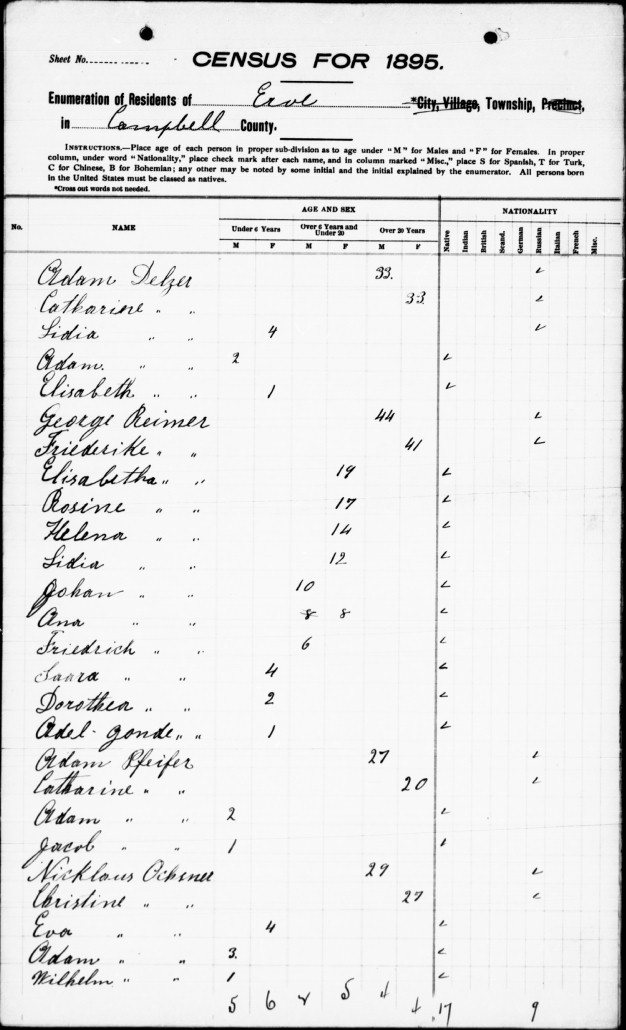 Sheet No.
CENSUS FOR 1895.
Enumeration of Residents of *City, Village, Township, Precinct,
in Campbell County.
INSTRUCTIONS.—Place age of each person in proper sub-division as to age under "M" for Males and "F" for Females. In proper
column, under word "Nationality," place check mark after each name, and in column marked "Misc.," place S for Spanish, T for Turk,
C for Chinese, B for Bohemian; any other may be noted by some initial and the initial explained by the enumerator. All persons born
in the United States must be classed as natives.
*Cross out words not needed.
AGE AND SEX NATIONALITY
No. NAME Under 6 Years Over 6 Years and Under 20 Over 20 Years Native Indian British Scand. German Russian Italian French Misc.
M F M F M F
Adam Delzer 33. ✓
Catharine " " 33. ✓
Lidia " " 4 ✓
Adam. " " 2 ✓
Elisabeth " " 1 ✓
George Reimer 44 ✓
Friederike " " 41 ✓
Elisabetha " " 19 ✓
Rosine " " 17 ✓
Helena " " 14 ✓
Lidia " " 12 ✓
Johan " " 10 ✓
Ana " " 8 8 ✓
Friedrich " " 6 ✓
Saara " " 4 ✓
Dorothea " " 2 ✓
Adel-gonde " " 1 ✓
Adam Pfeifer 27 ✓
Catharine " " 20 ✓
Adam " " 2 ✓
Jacob " " 1 ✓
Nicklaus Ochsner 29 ✓
Christine " " 27 ✓
Eva " " 4 ✓
Adam " " 3. ✓
Wilhelm " " 1 ✓
5 6 2 5 4 4 17 9